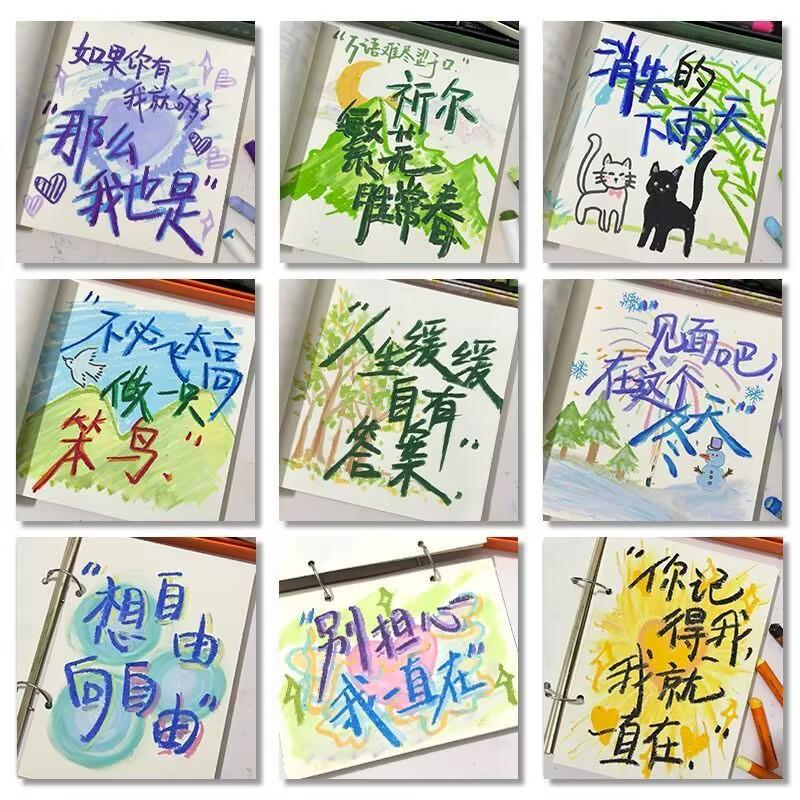 如果你有
我就够了
"那么
我也是"
"万语难尽望于口,
祈尔
繁花
胜常春
消失的
下雨天
"不必飞太高
做一只
笨鸟."
"人生缓缓
自有
答案."
见面吧,
在这个
冬天
"想自由
向自由"
"别担心
我一直在"
"你记
得我,
我就
一直在."